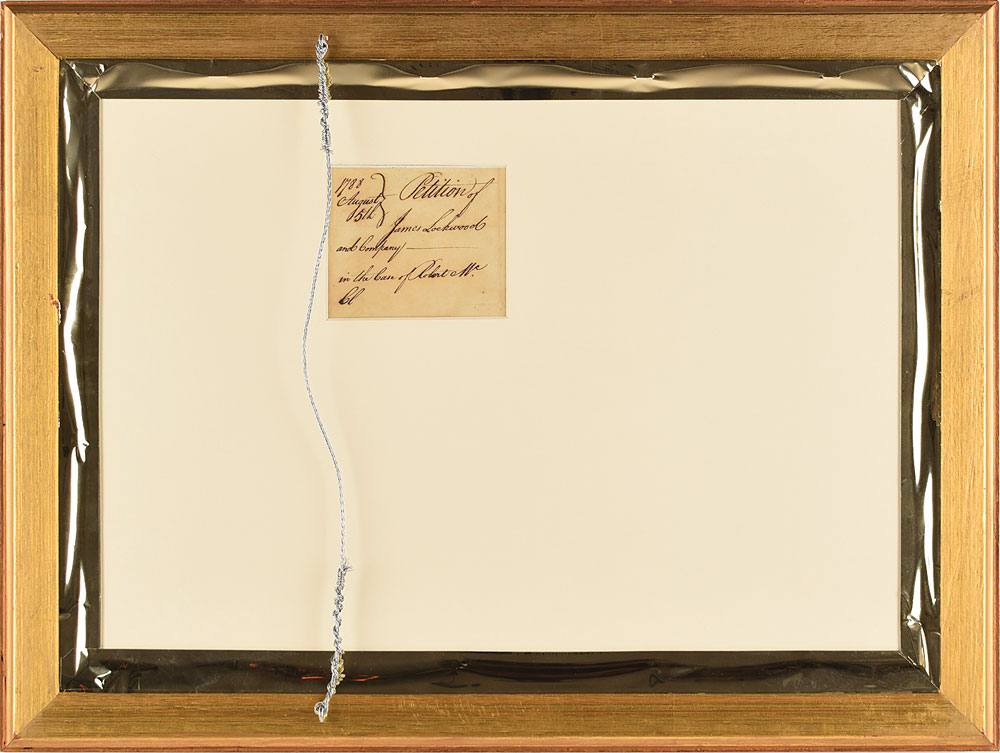 1788
August
15th
Petition of
James Lockwood
and Company
in the Case of Robert Mc.
Cl